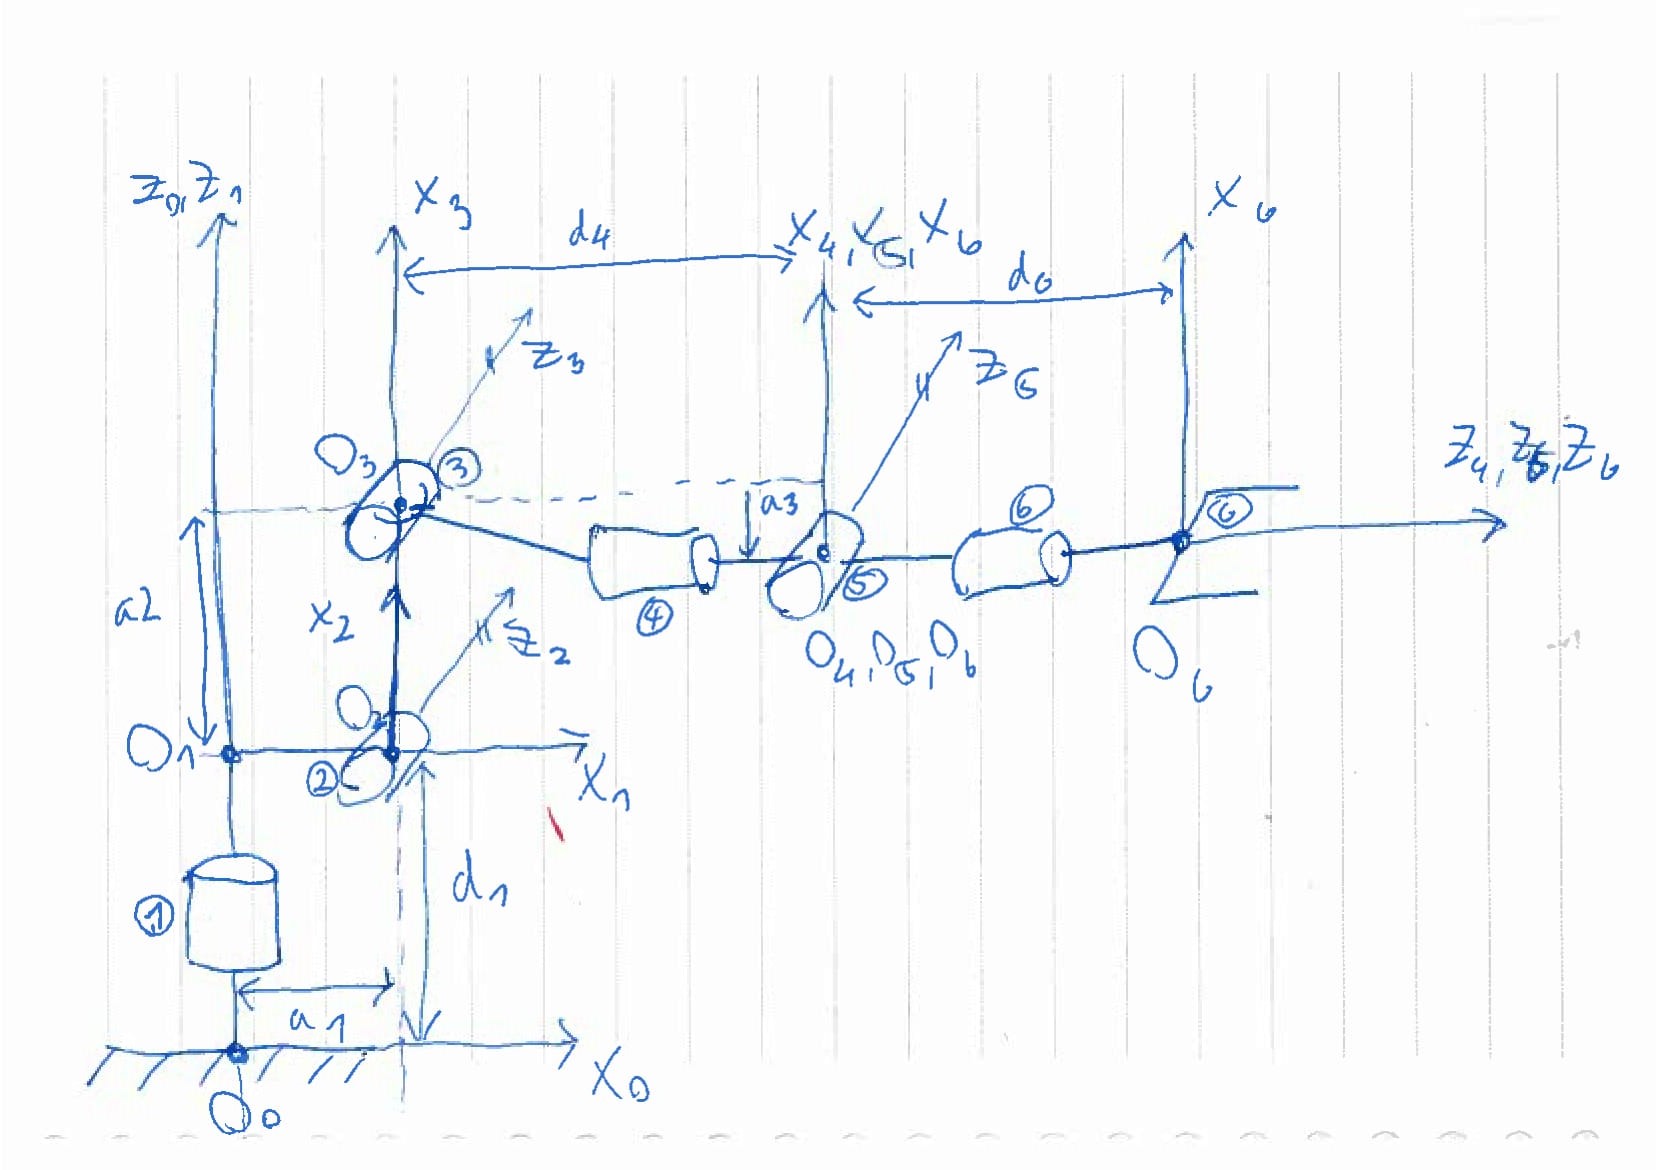 z0, z1
x3
d4
x4, x5, x6
x6
d6
z3
z5
O3
③
a3
⑥
z4, z6, z6
⑥
a2
x2
z2
④
⑤
O4, O5, O6
O6
O1
②
x1
d1
①
a1
x0
O0